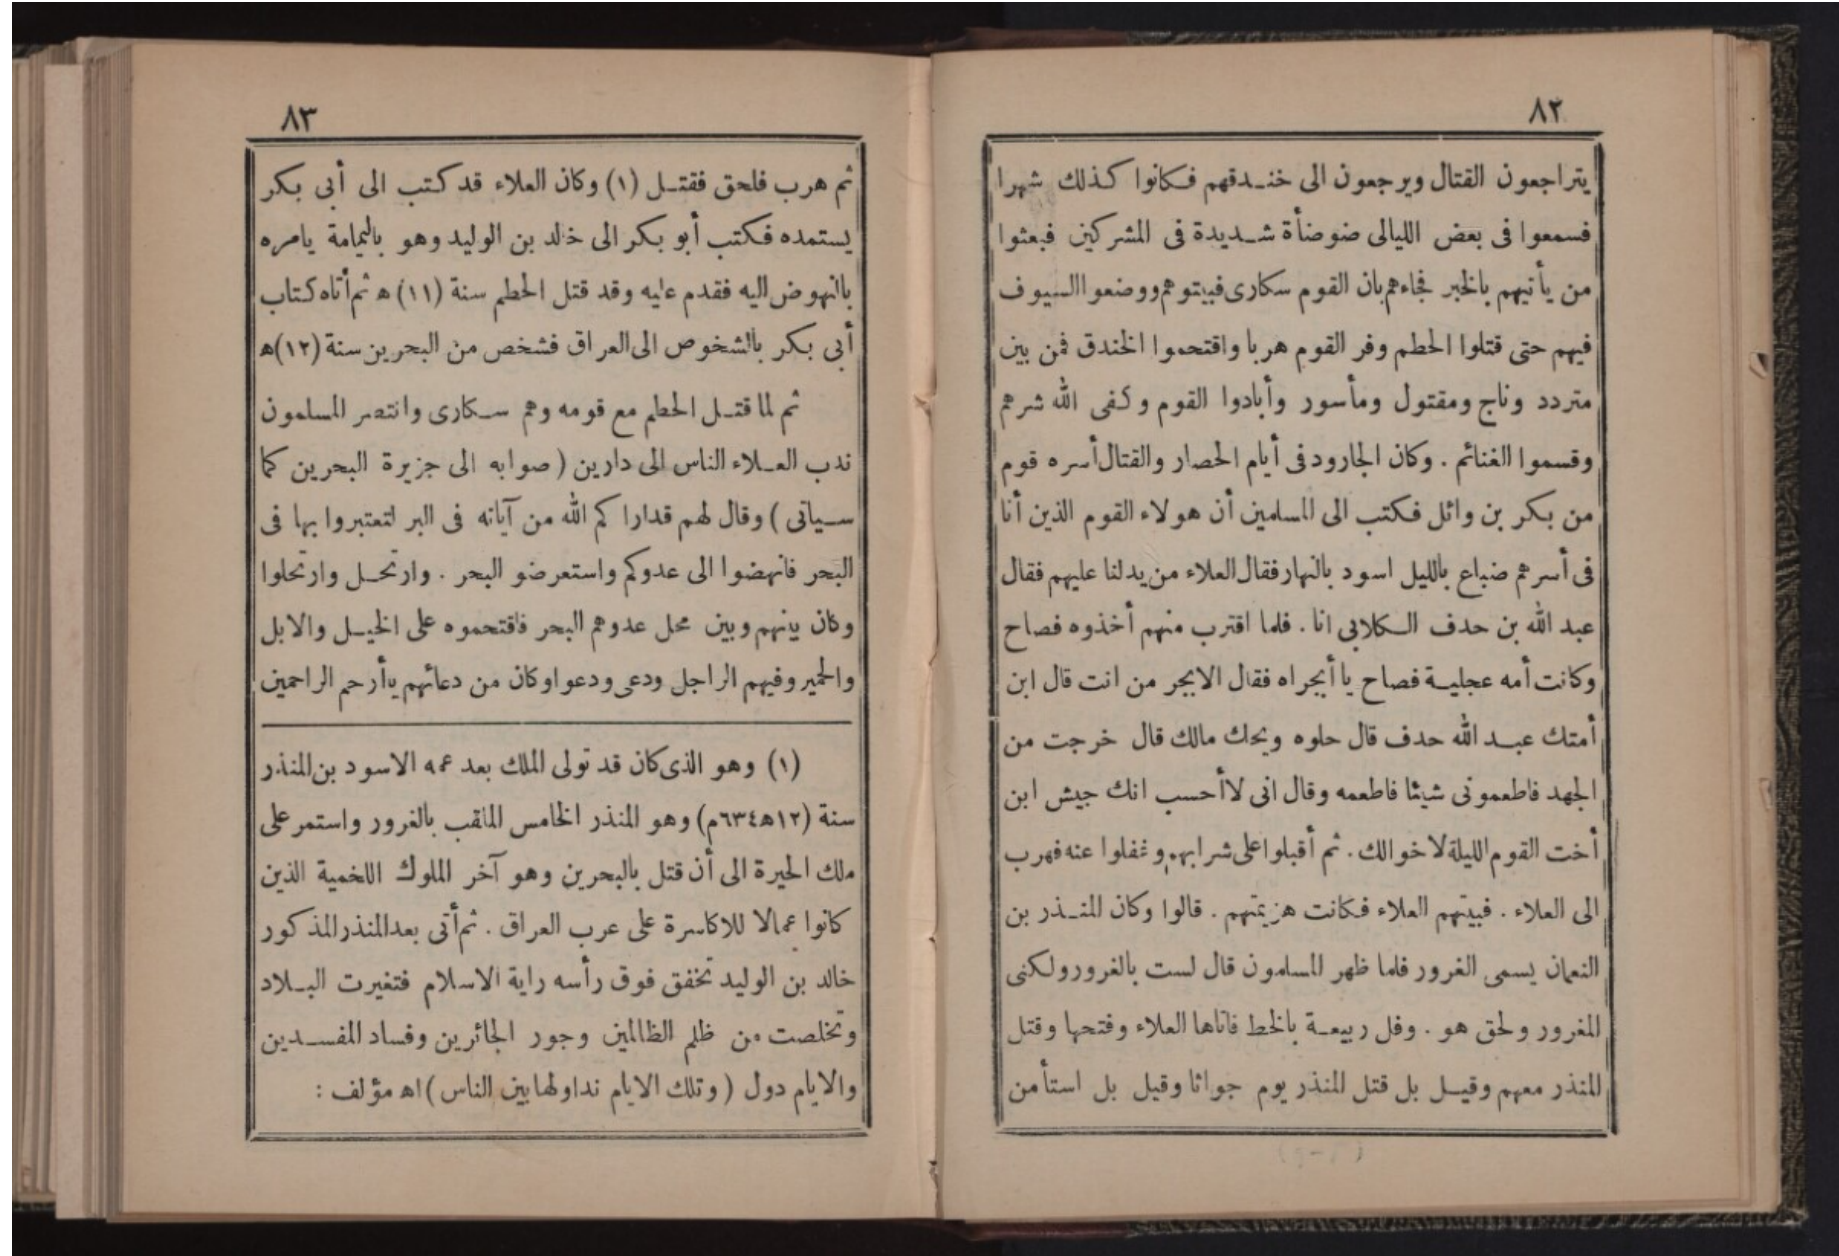 ٨٢
يتراجعون القتال ويرجعون الى خندقهم فكانوا كذلك شهرا
فسمعوا فى بعض الليالى ضوضأة شديدة فى المشركين فبعثوا
من يأتيهم بالخبر فجاءهم بان القوم سكارى فبيتوهم ووضعوا السيوف
فيهم حتى قتلوا الحطم وفر القوم هربا واقتحموا الخندق فمن بين
متردد وناج ومقتول ومأسور وأبادوا القوم وكفى الله شرهم
وقسموا الغنائم . وكان الجارود فى أيام الحصار والقتال أسره قوم
من بكر بن وائل فكتب الى المسلمين أن هولاء القوم الذين أنا
فى أسرهم ضباع بالليل اسود بالنهار فقال العلاء من يدلنا عليهم فقال
عبد الله بن حدف الكلابي انا . فلما اقترب منهم أخذوه فصاح
وكانت أمه عجلية فصاح يا أبجراه فقال الابجر من انت قال ابن
أمتك عبد الله حدف قال حلوه ويحك مالك قال خرجت من
الجهد فاطعمونى شيئا فاطعمه وقال انى لاأحسب انك جيش ابن
أخت القوم الليلة لاخوالك . ثم أقبلوا على شرابهم وغفلوا عنه فهرب
الى العلاء . فبيتهم العلاء فكانت هزيمتهم . قالوا وكان المنذر بن
النعمان يسمى الغرور فلما ظهر المسلمون قال لست بالغرور ولكنى
المغرور ولحق هو . وفل ربيعة بالخط فاتاها العلاء وفتحها وقتل
المنذر معهم وقيل بل قتل المنذر يوم جواثا وقيل بل استأمن
٨٣
ثم هرب فلحق فقتل (١) وكان العلاء قد كتب الى أبى بكر
يستمده فكتب أبو بكر الى خالد بن الوليد وهو باليمامة يامره
بالنهوض اليه فقدم عليه وقد قتل الحطم سنة (١١) ه ثم أتاه كتاب
أبى بكر بالشخوص الى العراق فشخص من البحرين سنة (١٢) ه
ثم لما قتل الحطم مع قومه وهم سكارى وانتصر المسلمون
ندب العلاء الناس الى دارين ( صوابه الى جزيرة البحرين كما
سياتى ) وقال لهم قدارا كم الله من آياته فى البر لتعتبروا بها فى
البحر فانهضوا الى عدوكم واستعرضو البحر . وارتحل وارتحلوا
وكان بينهم وبين محل عدوهم البحر فاقتحموه على الخيل والابل
والحمير وفيهم الراجل ودعى ودعوا وكان من دعائهم ياأرحم الراحمين
(١) وهو الذى كان قد تولى الملك بعد عمه الاسود بن المنذر
سنة (١٢ه٦٣٤م) وهو المنذر الخامس الملقب بالغرور واستمر على
ملك الحيرة الى أن قتل بالبحرين وهو آخر الملوك اللخمية الذين
كانوا عمالا للاكاسرة على عرب العراق . ثم أتى بعد المنذر المذكور
خالد بن الوليد تخفق فوق رأسه راية الاسلام فتغيرت البلاد
وتخلصت من ظلم الظالمين وجور الجائرين وفساد المفسدين
والايام دول ( وتلك الايام نداولها بين الناس ) اه مؤلف :